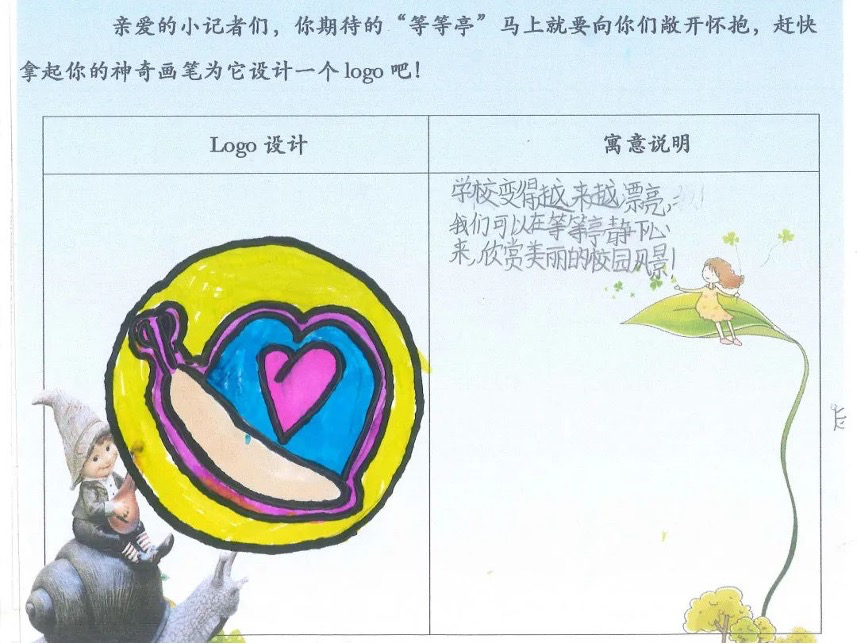 亲爱的小记者们，你期待的“等等亭”马上就要向你们敞开怀抱，赶快
拿起你的神奇画笔为它设计一个 logo 吧！
Logo 设计
寓意说明
学校变得越来越漂亮，
我们可以在等等亭静下心
来，欣赏美丽的校园风景！